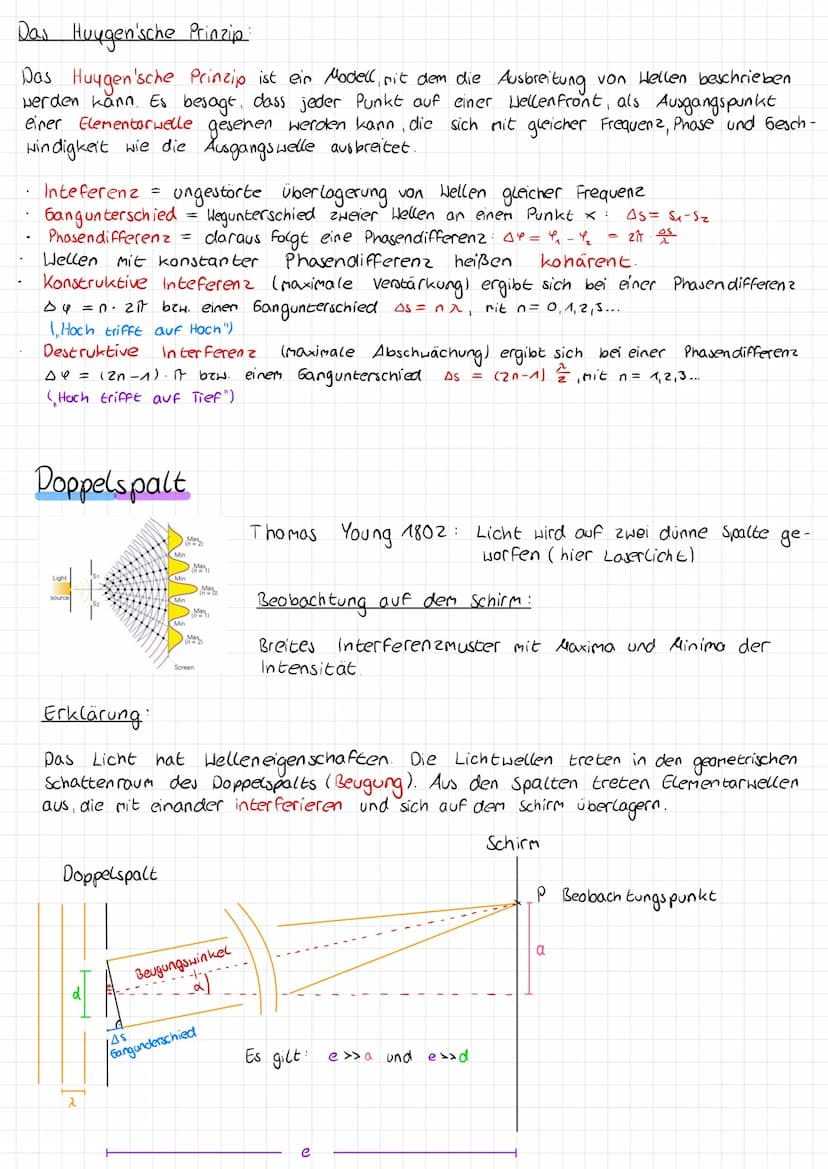 Das Huygen'sche Prinzip:
Das Huygen'sche Prinzip ist ein Modell, mit dem die Ausbreitung von Wellen beschrieben
werden kann. Es besagt, dass jeder Punkt auf einer Wellenfront, als Ausgangspunkt
einer Elementarwelle gesehen werden kann, die sich mit gleicher Frequenz, Phase und Gesch-
windigkeit wie die Ausgangswelle ausbreitet.
· Inteferenz = ungestörte überlagerung von Wellen gleicher Frequenz
· Gangunterschied = Wegunterschied zweier Wellen an einem Punkt x: Δs = s₁-s₂
· Phasendifferenz = daraus folgt eine Phasendifferenz: Δφ = φ₁ - φ₂ = 2π · Δs/λ
· Wellen mit konstanter Phasendifferenz heißen kohärent.
· Konstruktive Inteferenz (maximale Verstärkung) ergibt sich bei einer Phasendifferenz
Δφ = n · 2π bzw. einen Gangunterschied Δs = n λ, mit n = 0,1,2,3...
(„Hoch trifft auf Hoch")
· Destruktive Interferenz (maximale Abschwächung) ergibt sich bei einer Phasendifferenz
Δφ = (2n-1) · π bzw. einem Gangunterschied Δs = (2n-1) λ/2, mit n = 1,2,3...
(„Hoch trifft auf Tief")
Doppelspalt
Thomas Young 1802: Licht wird auf zwei dünne Spalte ge-
worfen (hier Laserlicht)
Light
source
S1
S2
Max
(n = 2)
Min
Max
(n = 1)
Min
Max
(n = 0)
Min
Max
(n = 1)
Min
Max
(n = 2)
Screen
Beobachtung auf dem Schirm:
Breites Interferenzmuster mit Maxima und Minima der
Intensität.
Erklärung:
Das Licht hat Welleneigenschaften. Die Lichtwellen treten in den geometrischen
Schattenraum des Doppelspalts (Beugung). Aus den Spalten treten Elementarwellen
aus, die mit einander interferieren und sich auf dem Schirm überlagern.
Schirm
Doppelspalt
P Beobachtungspunkt
Beugungswinkel
α
a
d
Δs
Gangunderschied
Es gilt: e >> a und e >> d
λ
e